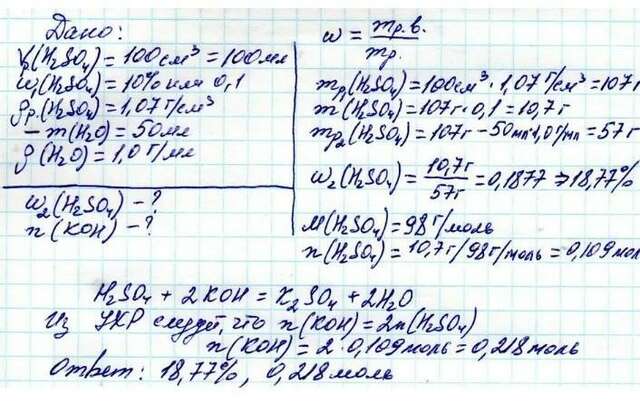 Дано:
Vр(H₂SO₄) = 100 см³ = 100 мл
ω₁(H₂SO₄) = 10% или 0,1
ρр.(H₂SO₄) = 1,07 г/см³
– m(H₂O) = 50 мл
ρ(H₂O) = 1,0 г/мл
ω₂(H₂SO₄) – ?
n(KOH) – ?
ω = mр.в. / mр.
mр₁(H₂SO₄) = 100 см³ · 1,07 г/см³ = 107 г
m(H₂SO₄) = 107 г · 0,1 = 10,7 г
mр₂(H₂SO₄) = 107 г – 50 мл · 1,0 г/мл = 57 г
ω₂(H₂SO₄) = 10,7 г / 57 г = 0,1877 ⇒ 18,77%
M(H₂SO₄) = 98 г/моль
n(H₂SO₄) = 10,7 г / 98 г/моль = 0,109 мол
H₂SO₄ + 2KOH = K₂SO₄ + 2H₂O
Из УХР следует, что n(KOH) = 2n(H₂SO₄)
n(KOH) = 2 · 0,109 моль = 0,218 моль
Ответ: 18,77%, 0,218 моль